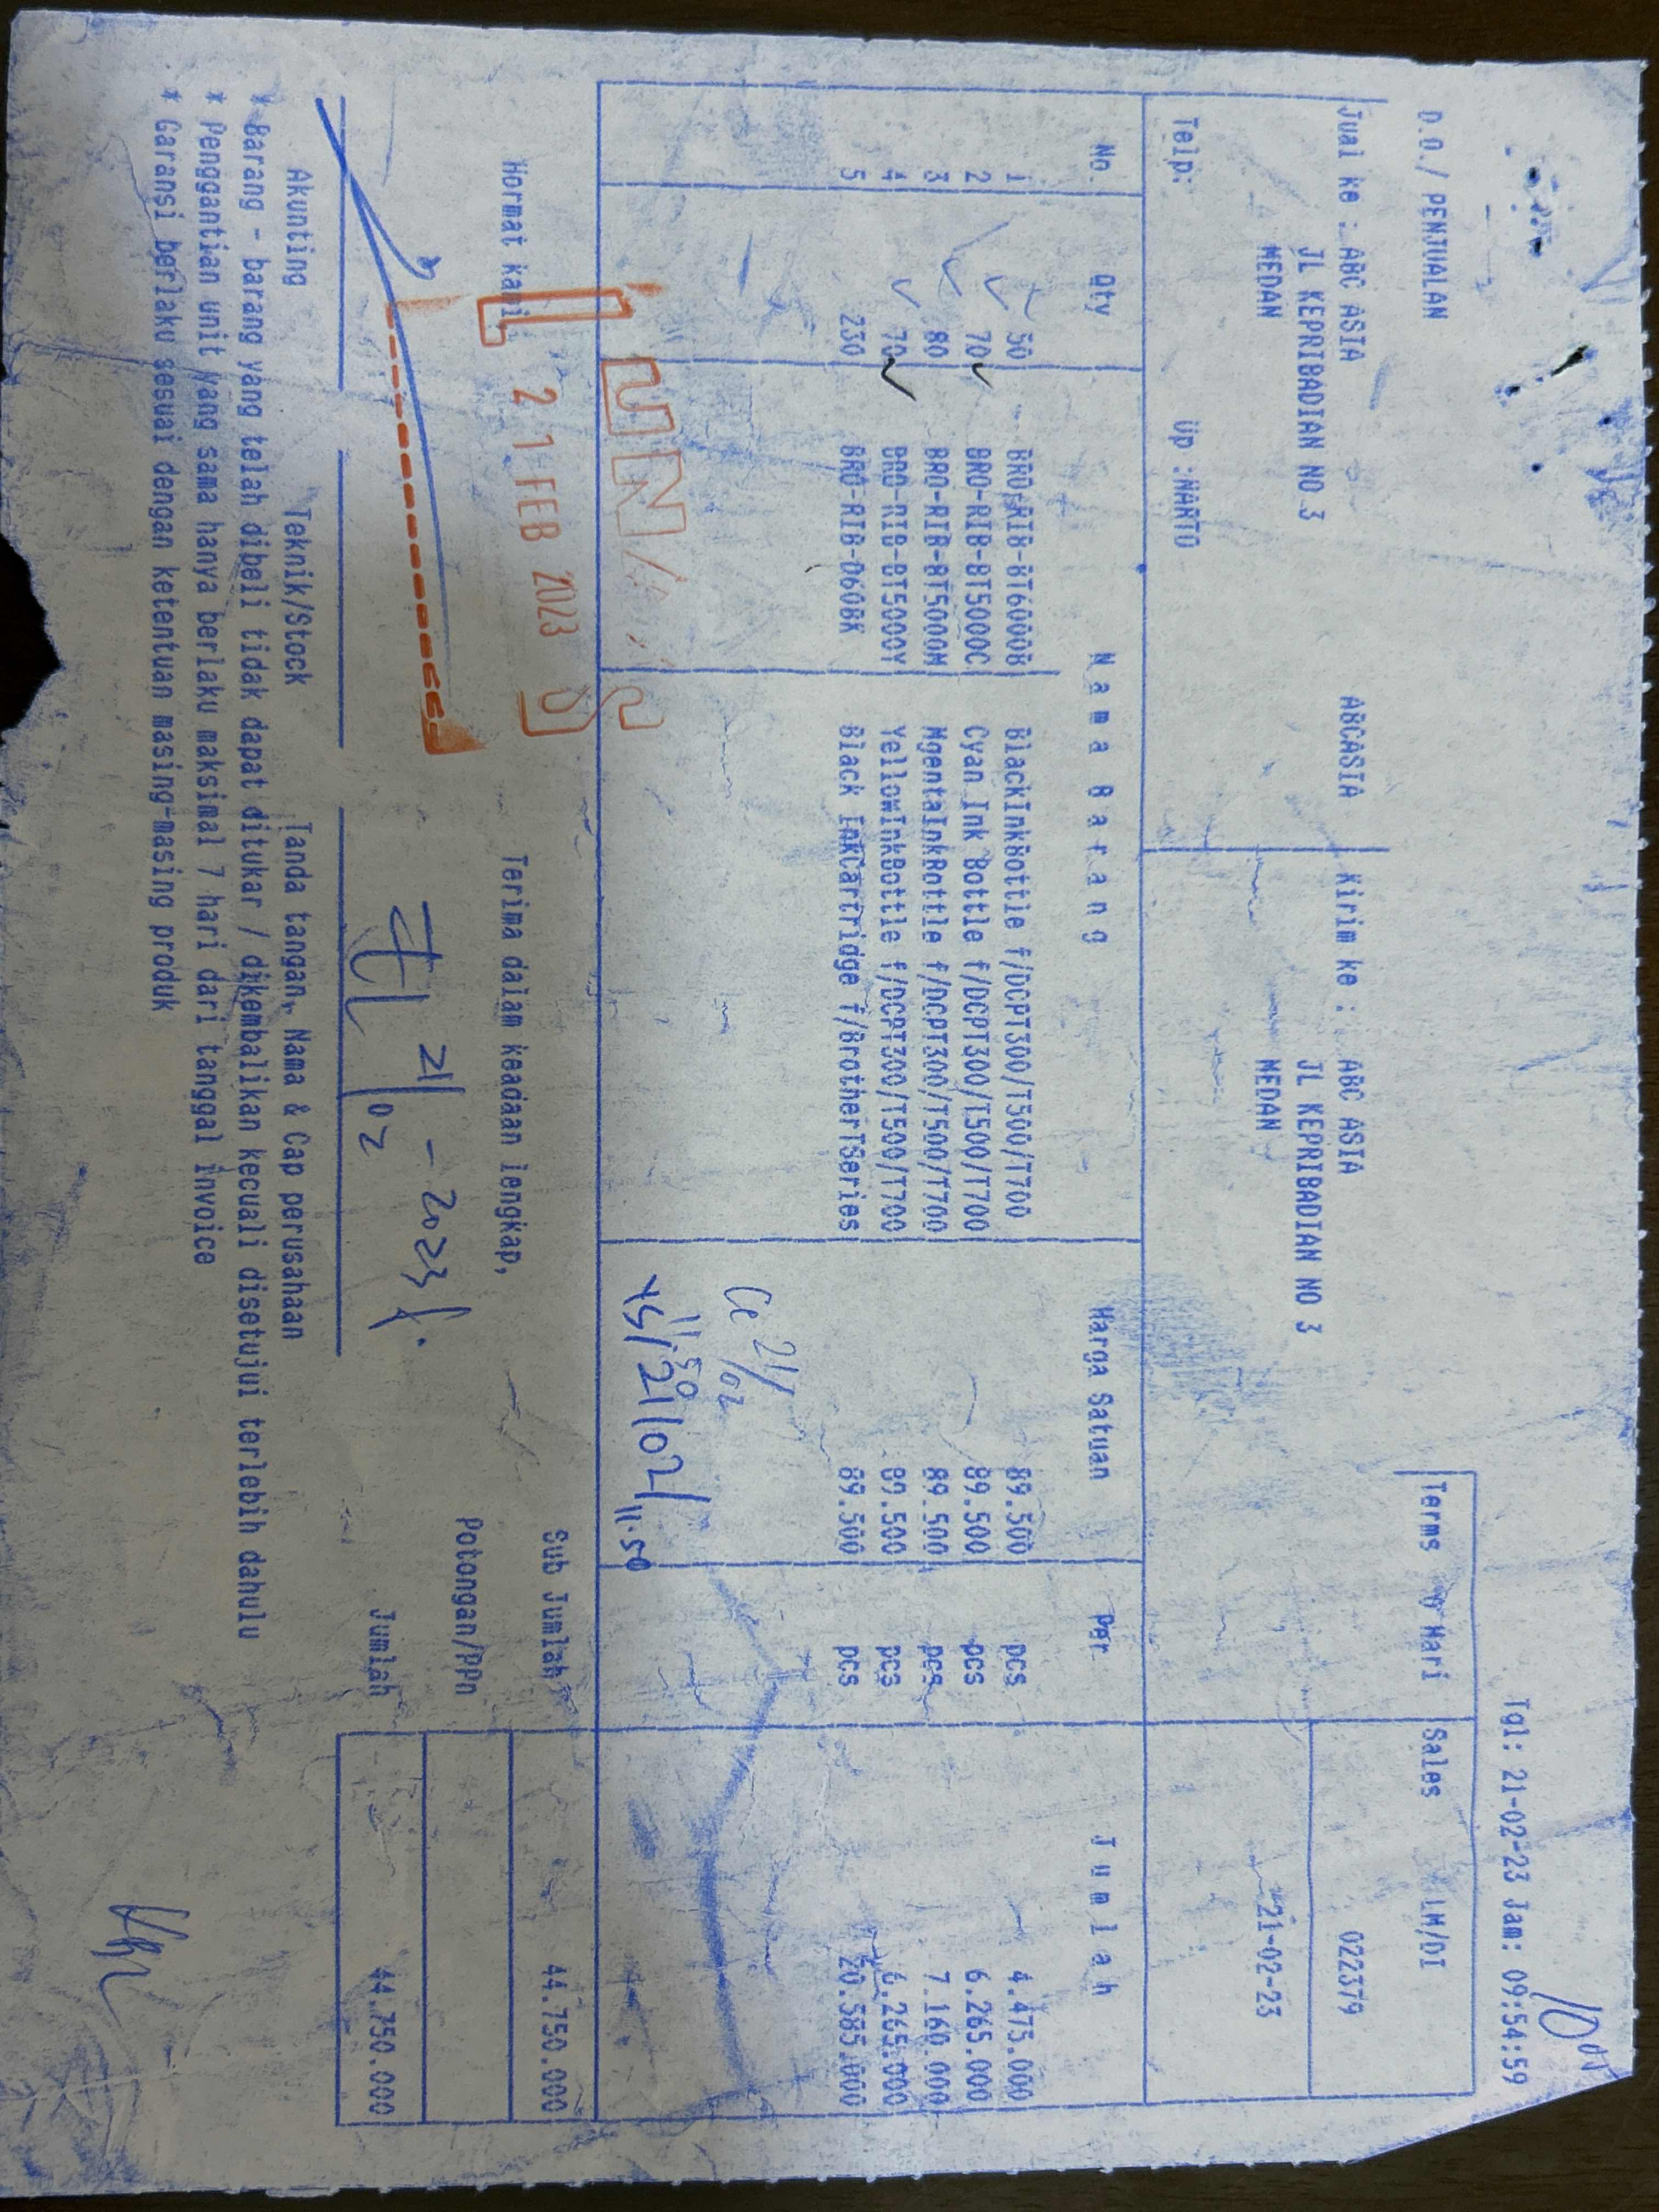 Tgl: 21-02-23 Jam: 09:54:59
D.O./ PENJUALAN
Terms Hari Sales LM/DI
Jual ke : ABC ASIA ABCASIA Kirim ke : ABC ASIA 022379
JL KEPRIBADIAN NO 3 JL KEPRIBADIAN NO 3
MEDAN MEDAN 21-02-23
Telp: Up :NARTO
No. Qty Nama Barang Harga Satuan Per Jumlah
1 50 BRO-RIB-BT6000B BlackInkBottle f/DCPT300/T500/T700 89.500 pcs 4.475.000
2 70 BRO-RIB-BT5000C Cyan Ink Bottle f/DCPT300/T500/T700 89.500 pcs 6.265.000
3 80 BRO-RIB-BT5000M MgentaInkBottle f/DCPT300/T500/T700 89.500 pcs 7.160.000
4 70 BRO-RIB-BT5000Y YellowInkBottle f/DCPT300/T500/T700 89.500 pcs 6.265.000
5 230 BRO-RIB-D60BK Black InkCartridge f/BrotherTSeries 89.500 pcs 20.585.000
21/02
11:50
21/02/ 11.50
LUNAS
21 FEB 2023
Sub Jumlah 44.750.000
Hormat kami, Terima dalam keadaan lengkap,
Potongan/PPn
21/02 - 2023
Jumlah 44.750.000
Akunting Teknik/Stock Tanda tangan, Nama & Cap perusahaan
* Barang - barang yang telah dibeli tidak dapat ditukar / dikembalikan kecuali disetujui terlebih dahulu
* Penggantian unit yang sama hanya berlaku maksimal 7 hari dari tanggal invoice
* Garansi berlaku sesuai dengan ketentuan masing-masing produk